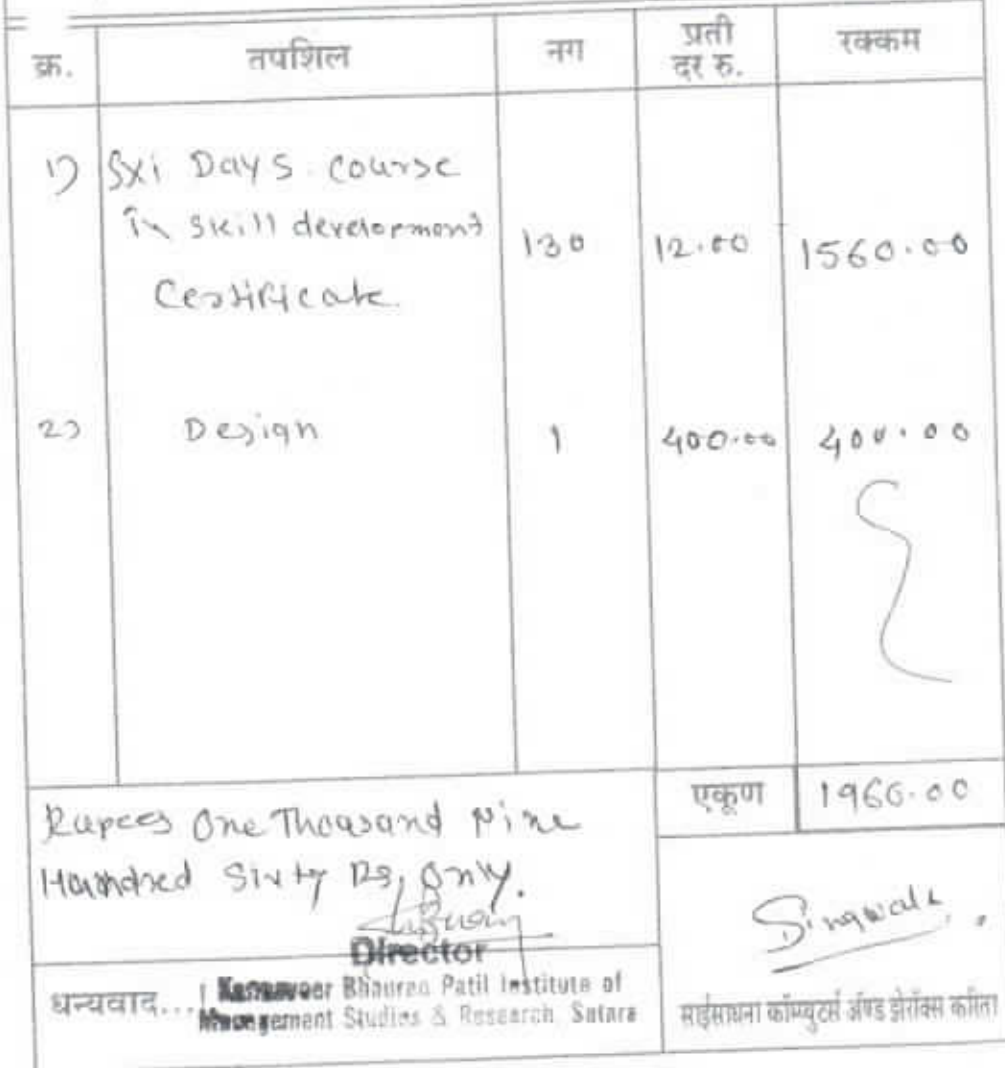 क्र. तपशिल नग प्रती दर रु. रक्कम
1) Sxi Days course
in skill development 130 12.00 1560.00
Certificate
2) Design 1 400.00 400.00
एकूण 1960.00
Rupees One Thousand Nine
Hundred Sixty Rs, Only.
Singwale
Director
धन्यवाद.... Karmaveer Bhaurao Patil Institute of
Management Studies & Research, Satara
साईसाधना कॉम्प्युटर्स ॲण्ड झेरॉक्स करिता